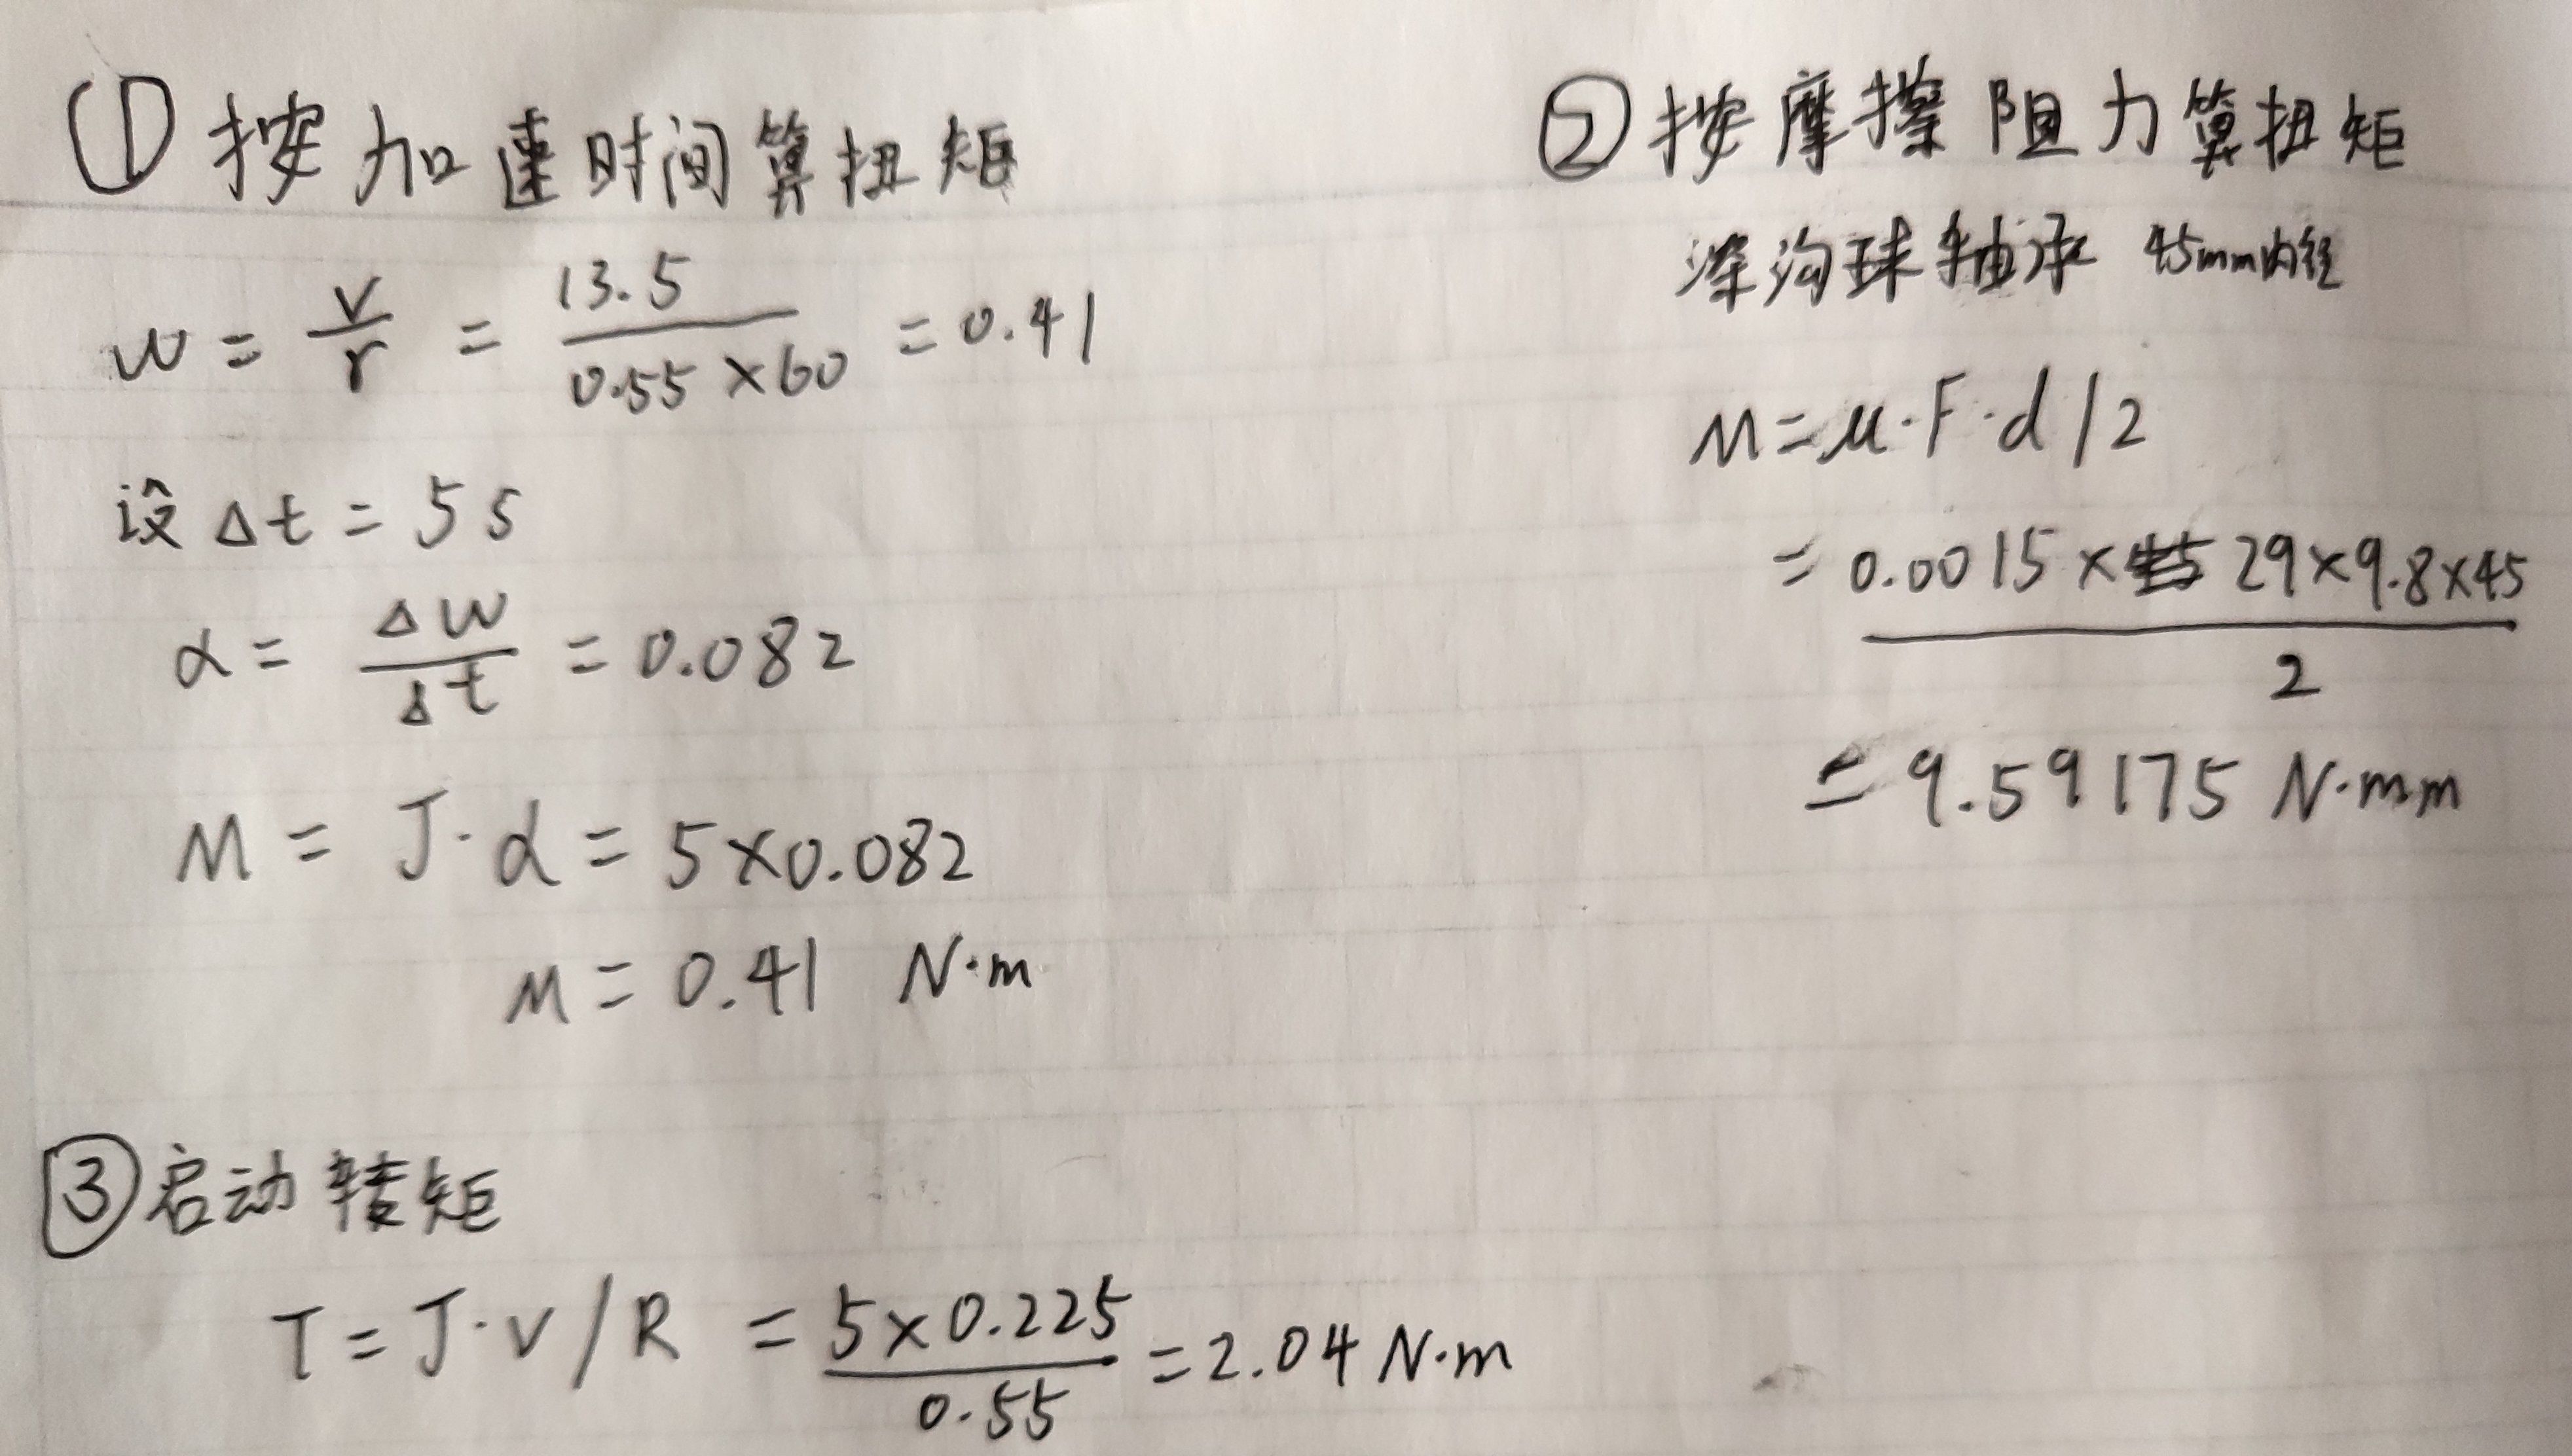 ① 按加速时间算扭矩
w = v/r = 13.5/(0.55×60) = 0.41
设 Δt = 5s
α = Δw/Δt = 0.082
M = J·α = 5×0.082
M = 0.41 N·m
② 按摩擦阻力算扭矩
深沟球轴承 45mm内径
M = μ·F·d/2
= (0.0015×29×9.8×45)/2
= 9.59175 N·mm
③ 启动转矩
T = J·v/R = (5×0.225)/0.55 = 2.04 N·m